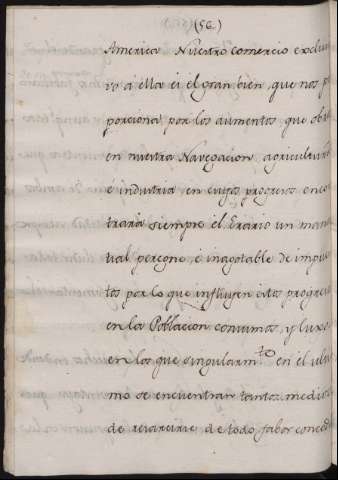 (56)
America Nuestro comercio exclusi
vo á ella es el gran bien, que nos p
porciona, por los aumentos que obra
en nuestra Navegacion, agricultura
é industria en cuyos progresos encon
traría siempre el Erario un man
tial peregne, é inagotable de impue
tos por lo que influyen estos progres
en la Poblacion consumos, y luxo
en los que singularm.te en el ulti
mo se encuentran tantos medio
de resarcirse de todo fabor conced